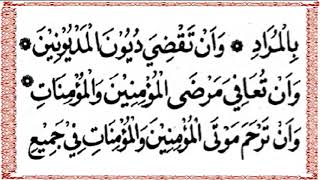 بِالْمُرَادِ * وَاَنْ تَقْضِيَ دُيُونَ الْمَدْيُونِينَ *
وَاَنْ تُعَافِيَ مَرْضَى الْمُؤْمِنِينَ وَالْمُؤْمِنَاتِ
وَاَنْ تَرْحَمَ مَوْتَى الْمُؤْمِنِينَ وَالْمُؤْمِنَاتِ فِي جَمِيعِ